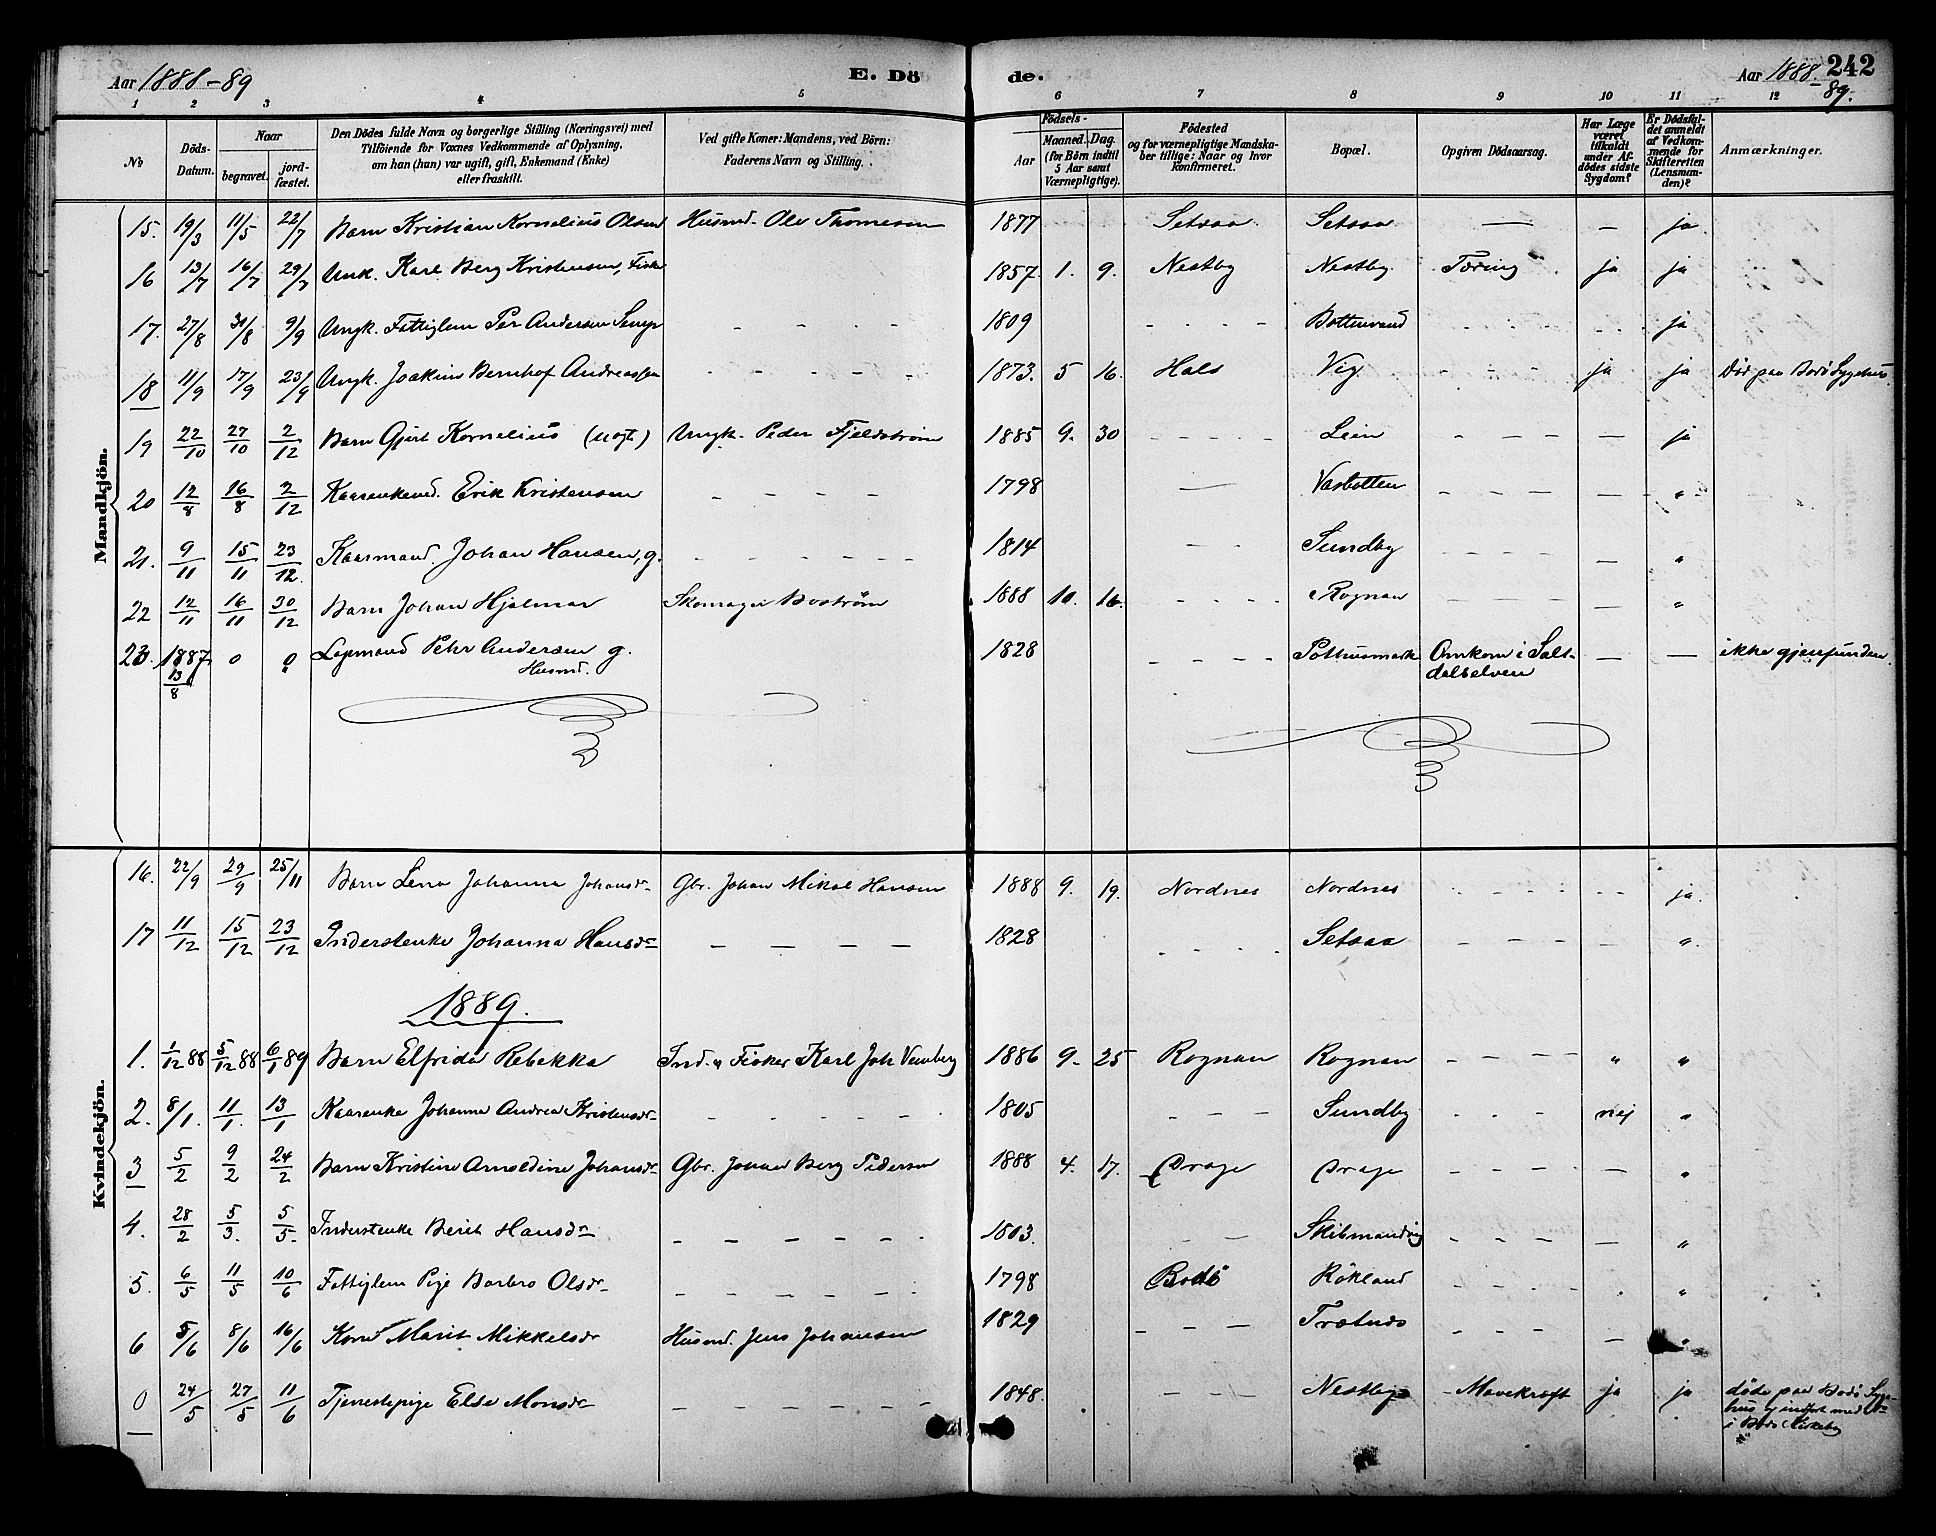 Aar 1888-89
E. Dö
de.
Aar 1888-89.
242
1 2 3 4 5 6 7 8 9 10 11 12
No
Döds-Datum.
Naar
begravet.
jord-fæstet.
Den Dödes fulde Navn og borgerlige Stilling (Næringsvei) med
Tilföiende for Voxnes Vedkommende af Oplysning,
om han (hun) var ugift, gift, Enkemand (Enke)
eller fraskilt.
Ved gifte Koner: Mandens, ved Börn:
Faderens Navn og Stilling.
Födsels-
Aar
Maaned. Dag.
(for Börn indtil
5 Aar samt
Værnepligtige).
Födested
og for værnepligtige Mandska-
ber tillige: Naar og hvor
Konfirmeret.
Bopæl.
Opgiven Dödsaarsag.
Har Læge
været
tilkaldt
under Af-
dödes sidste
Sygdom?
Er Dödsfal-
det anmeldt
af Vedkom-
mende for
Skifteretten
(Lensman-
den)?
Anmærkninger.
Mandkjön.
15. 19/3 11/5 22/7 Barn Kristian Kornelius Olsen Husmd. Ole Thomesen 1877 Setsaa Setsaa — — ja
16 13/7 16/7 29/7 Ungk. Karl Berg Kristensen, Fisker 1857. 1. 9. Nestby Nestby. Tæring ja ja
17. 27/8 31/8 9/9 Ungk. Fattiglem Per Andersen 1809 Bottenvand ja
18 11/9 17/9 23/9 Ungk. Joakim Bernhof Andreassen 1873. 5 16. Hals Vig ja ja Död paa Bodö Sygehus.
19 22/10 27/10 2/12 Barn Gjert Kornelius (uægt) Ungk. Peder Fjeldström 1885 9. 30 Lein — ja
20 12/8 16/8 2/12 Kaarenkemd. Erik Kristensen 1798 — Vasbotten — "
21. 9/11 15/11 23/12. Kaarmand. Johan Hansen, g. 1814 Sundby — "
22 12/11 16/11 30/12 Barn Johan Hjalmar Skomager Boström 1888 10. 16. Rognan — "
23. 1887 13/8 0 0 Lapmand Pehr Andersen g.
Husmd. 1828 Pothusmark Omkom i Salt-
dalselven — — ikke gjenfunden.
Kvindekjön.
16. 22/9 29/9 25/11 Barn Lena Johanna Johansdr Gbr. Johan Mikal Hansen 1888 9. 19. Nordnes Nordnes ja.
17 11/12 15/12 23/12 Inderstenke Johanna Hansdr 1828 Setsaa "
1889.
1. 1/12 88 5/12 88 6/1 89 Barn Elfrida Rebekka Ind. & Fisker Karl Joh 1886 9. 25 Rognan Rognan " "
2. 8/1. 11/1. 13/1 Kaarenke Johanna Andrea Kristensdr 1805 Sundby nej "
3 5/2 9/2 24/2 Barn Kristine Arnoldine Johansdr Gbr. Johan Berg Pedersen 1888 4. 17. Drage Drage — "
4. 28/2 5/3. 5/5. Inderstenke Berit Hansdr 1803. Skibmandvig — "
5. 6/5 11/5 10/6 Fattiglem Pige Barbro Olsdr 1798 Bodö Rökland "
6 5/6 8/6 16/6 Kone Marit Mikkelsdr Husmd. Jens Johansen 1829 Trætnes — "
0 24/5 27/5 11/6 Tjenestepige Else Monsdr 1848. Nestby Mavekræft ja ja döde paa Bodö Syge-
hus og indført med No
i Bodö Kirkebog